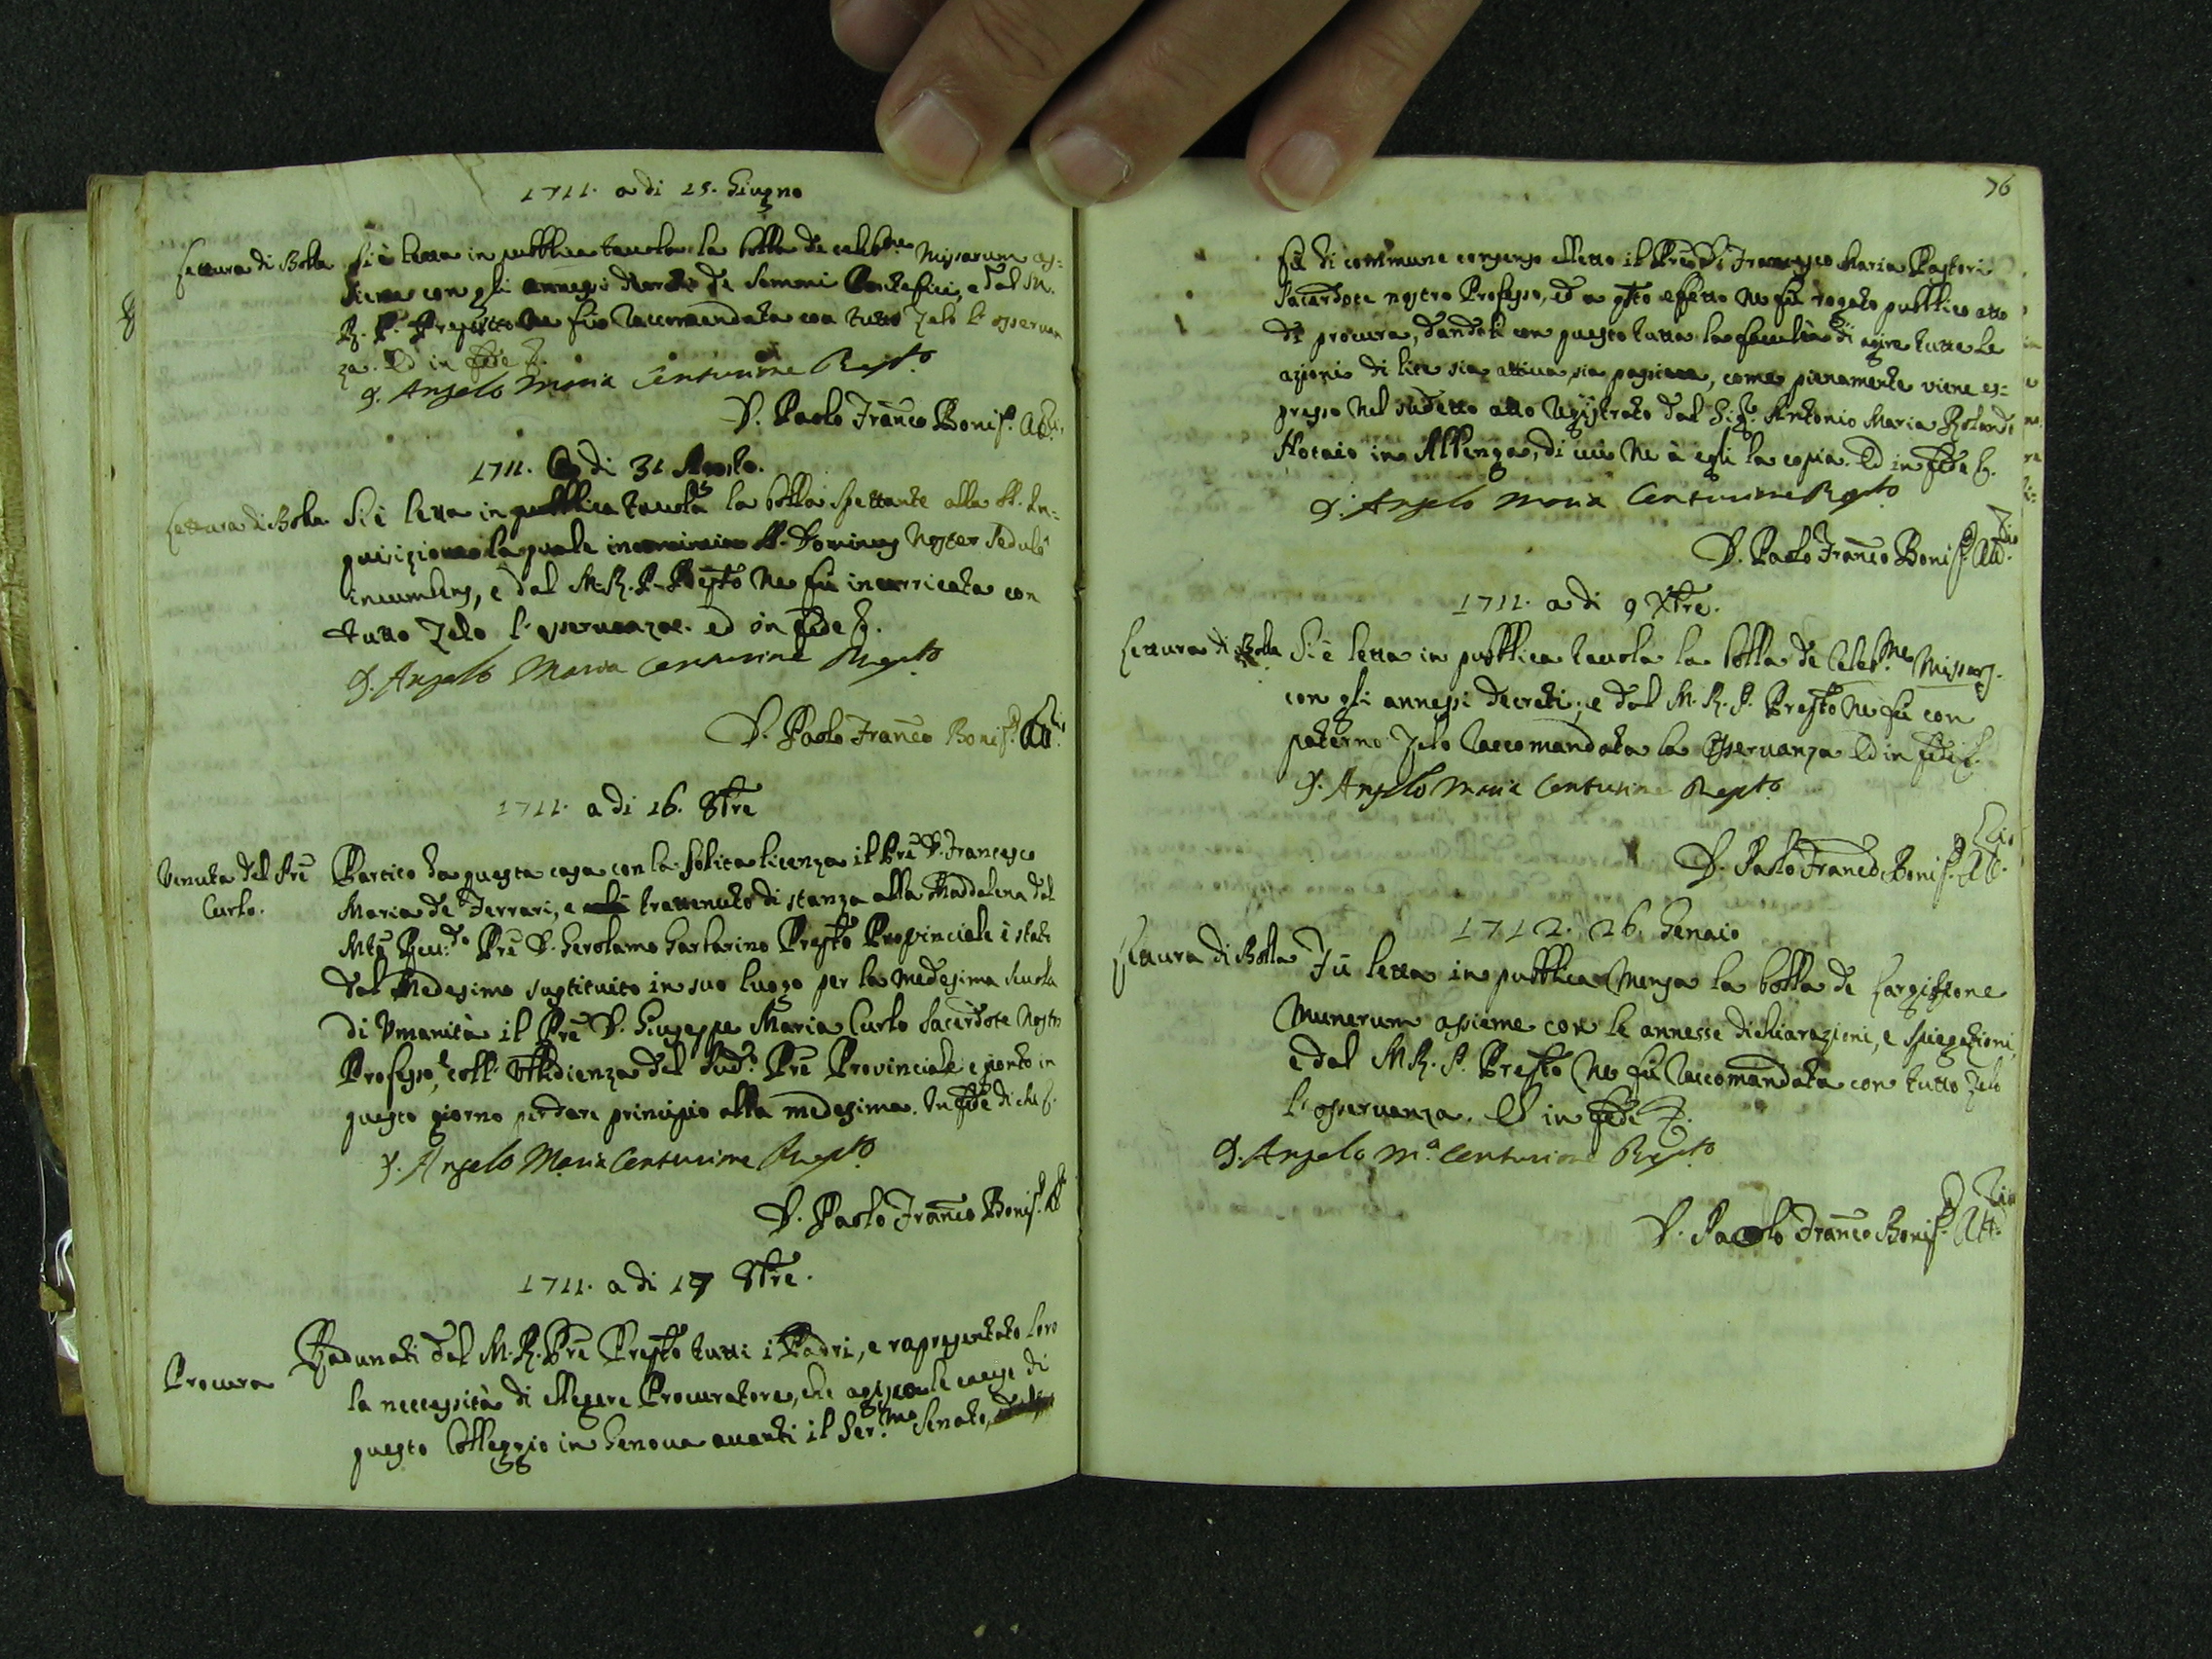 1711. a di 25. Giugno
Lettura di Bolla Si è letta in pubblica tavola la bolla de celeb.ne Missarum as=
sieme con gli annessi decreti de Sommi Pontefici, e dal M.
R. P. Preposto ne fu raccomandata con tutto zelo l'osservan
za. Ed in fede &.
D. Angelo Maria Centurione Prep.to
D. Paolo Franco Bonif. Att.
1711. A di 31 Agosto.
Lettura di Bolla. Si è letta in pubblica tavola la bolla spettante alla S. In=
quisizione la quale incomincia S. Dominus Noster sedulò
incumbens, e dal M. R. P. Prepto ne fu incarricata con
tutto zelo l'osservanza. ed in fede &.
D. Angelo Maria Centurione Prepto
D. Paolo Franco Bonif. Att.
1711. a di 16. 8bre
Venuta del Pre Curlo.
Partito da questa casa con la solita licenza il Pre D. Francesco
Maria de Ferrari, e trattenuto di stanza alla Maddalena dal
Mto Reu.do Pre D. Gerolamo Garbarino Prepto Provinciale è stato
dal Medesimo sustituito in suo luogo per la medesima scuola
di Umanità il Pre D. Giuseppe Maria Curlo Sacerdote Nostro
Professo, coll' Ubbidienza del Sud.o Pre Provinciale e gionto in
questo giorno per dare principio alla medesima. In fede di che &.
D. Angelo Maria Centurione Prepto
D. Paolo Franco Bonif. Att
1711. a di 17 8bre.
Procura Radunati dal M. R. Pre Prepto tutti i Padri, e rapresentato loro
la necessità di ellegere Procuratore, che agisca le cause di
questo Colleggio in Genova auanti il Ser.mo Senato,
76
fu di commune consenso elletto il Pre D. Francesco Maria Pastori
Sacerdote nostro Professo, ed a qsto effetto ne fu rogato pubblico atto
di procura, dandoli con questo tutta la facultà di agire tutte le
azioni di lite sia attiua, sia passiua, come pienamente viene es=
presso nel sudetto atto registrato dal Sig. Antonio Maria Rolandi
Notaio in Albenga, di cui ne à egli la copia. Ed in fede &.
D. Angelo Maria Centurione Prepto
D. Paolo Franco Bonif. Att.
1711. a di 9 Xbre.
Lettura di Bolla Si è letta in pubblica tauola la bolla de Celeb.ne Missarum
con gli annessi decreti, e dal M. R. P. Prepto ne fu con
paterno zelo raccomandata la osseruanza Ed in fede &.
D. Angelo Maria Centurione Prepto
D. Paolo Franco Bonif. Att.
1712. 26. Genaio
Lettura di Bolla Fu letta in pubblica Mensa la bolla de Largissione
Munerum assieme con le annesse dichiarazioni, e spiegazioni,
e dal M. R. P. Prepto ne fu raccomandata con tutto zelo
l'osseruanza. Ed in fede &.
D. Angelo M.a Centurione Prepto
D. Paolo Franco Bonif. Att.